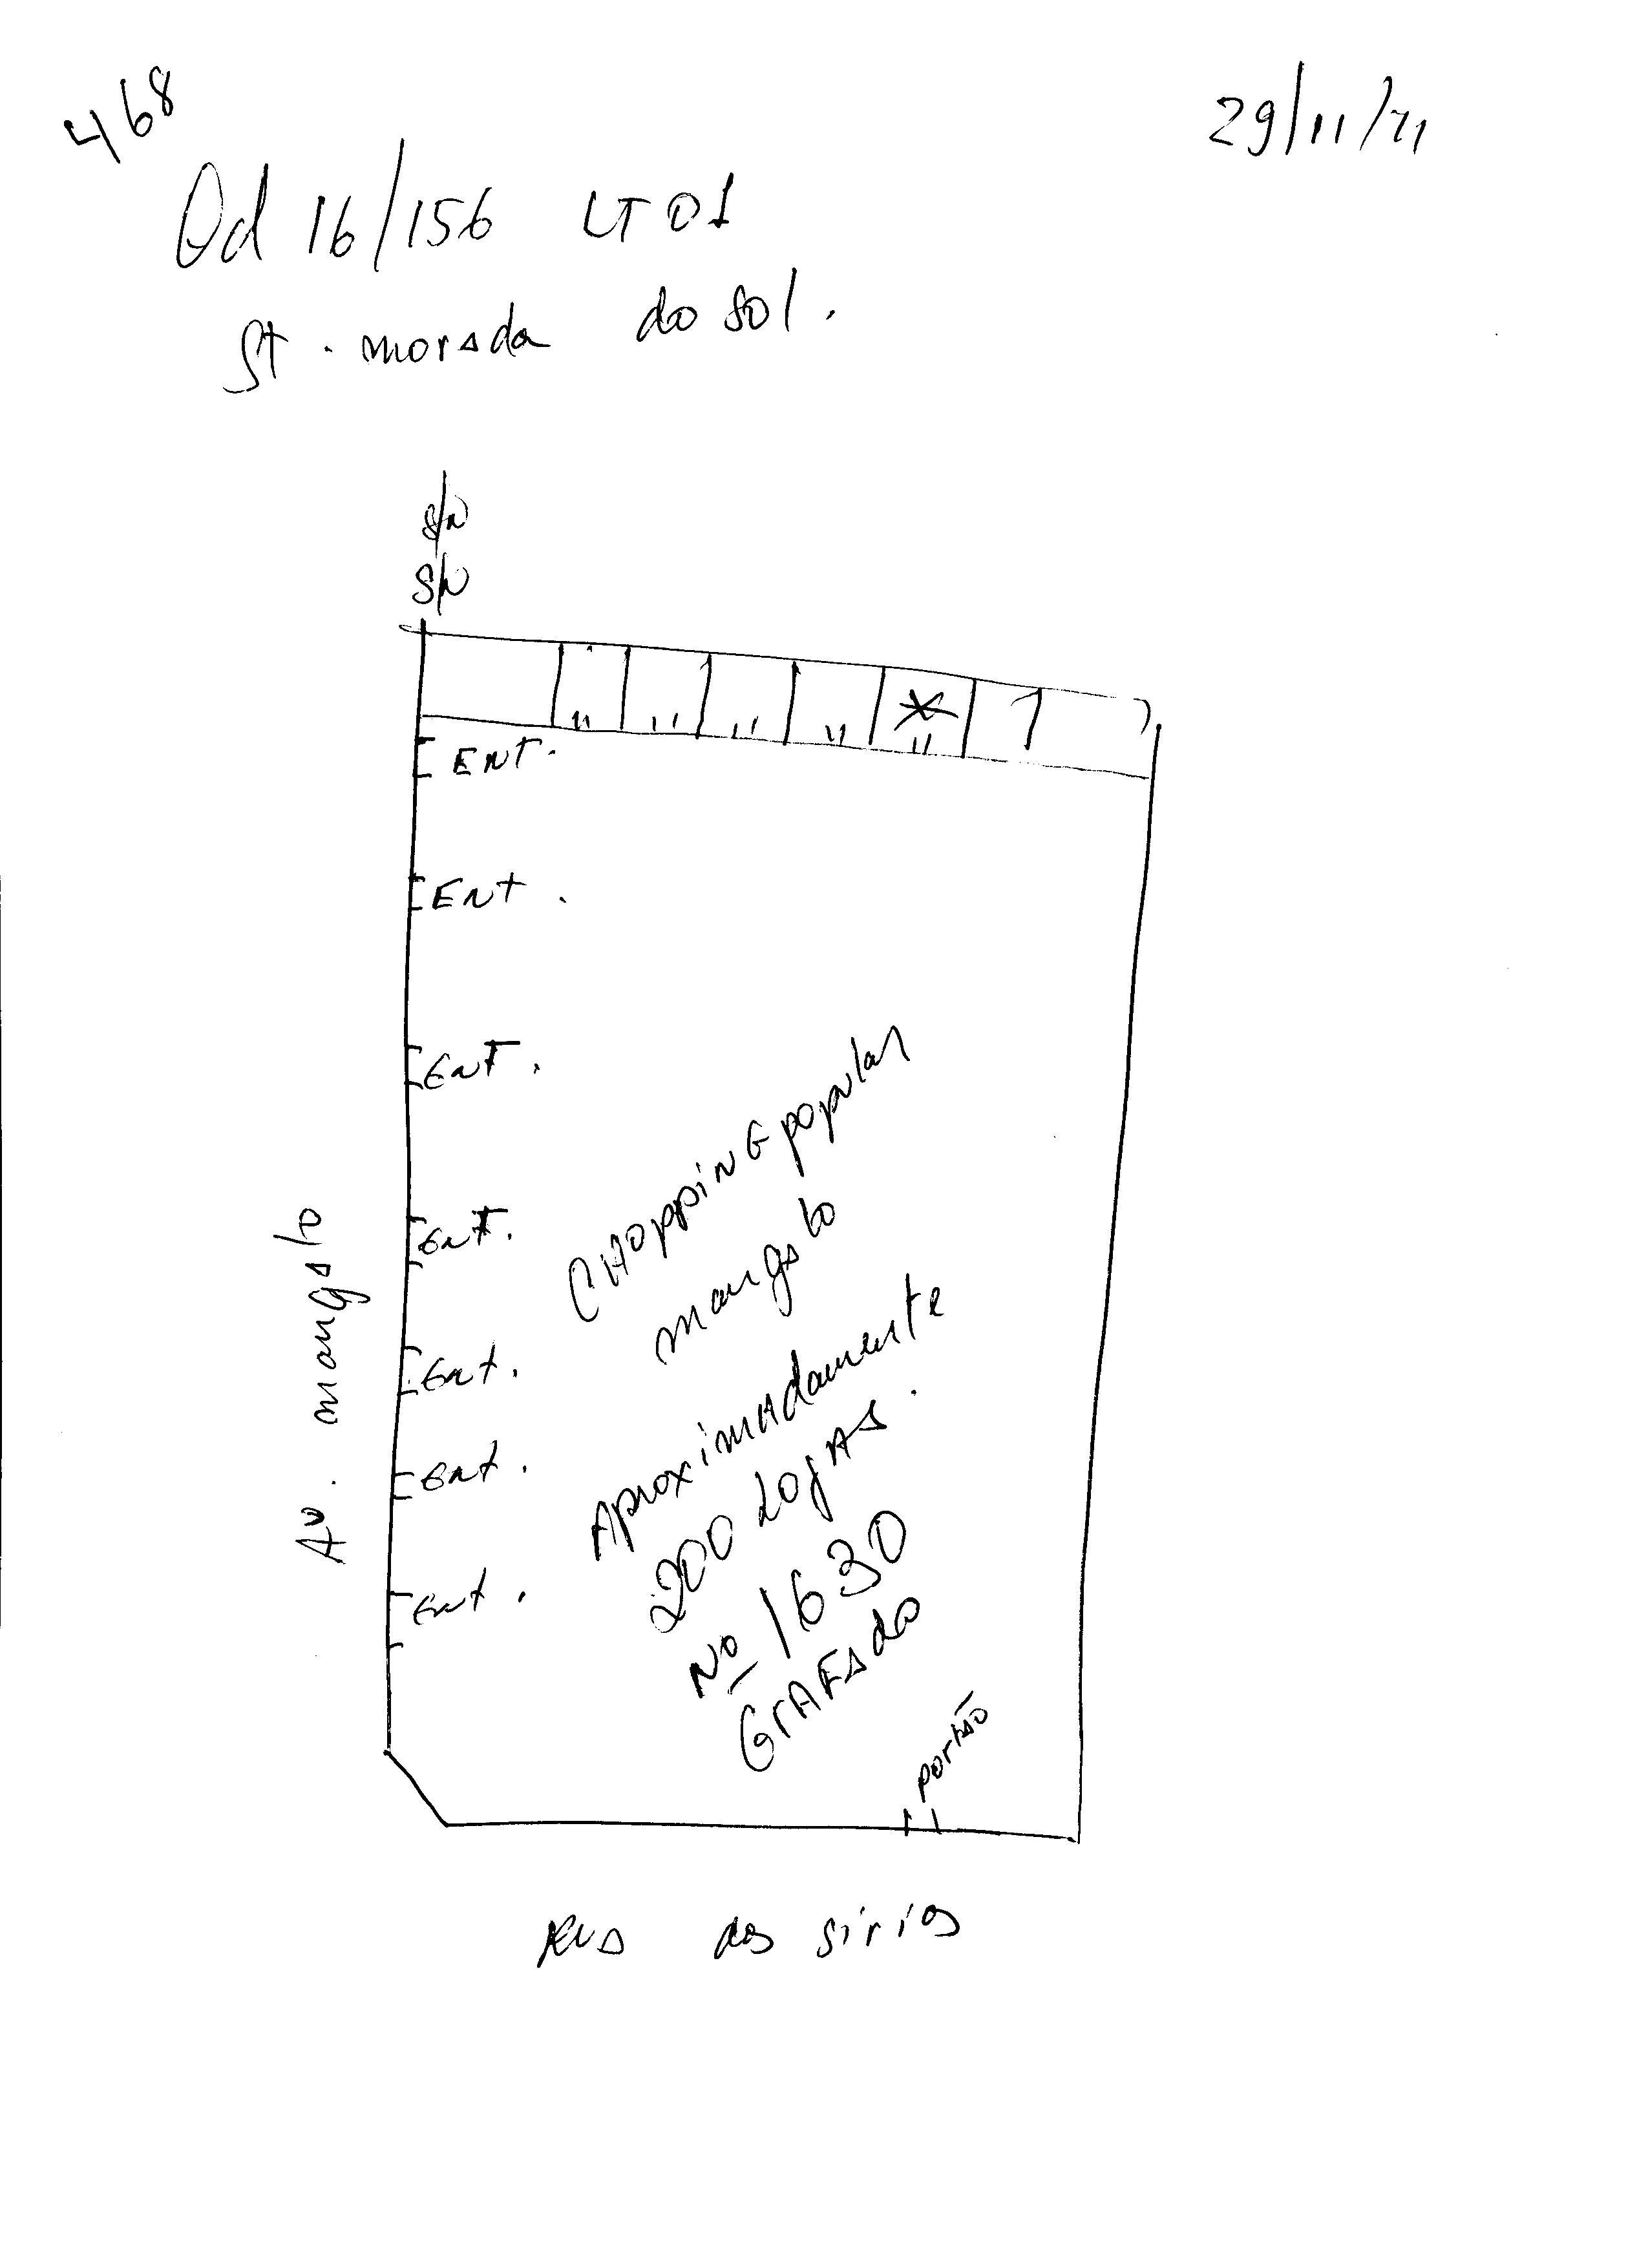 468
29/11/21
Qd 16/156 LT 01
St. morada do sol.
S/N
S/N
" " " " "
ENT.
ENT.
ENT.
ENT.
ENT.
ENT.
ENT.
CHOPPING popular
mangalo
Aproximadamente
200 LOJAS.
Nº 1630
GrAFado
portão
Av. mangalo
Rua dos sirios